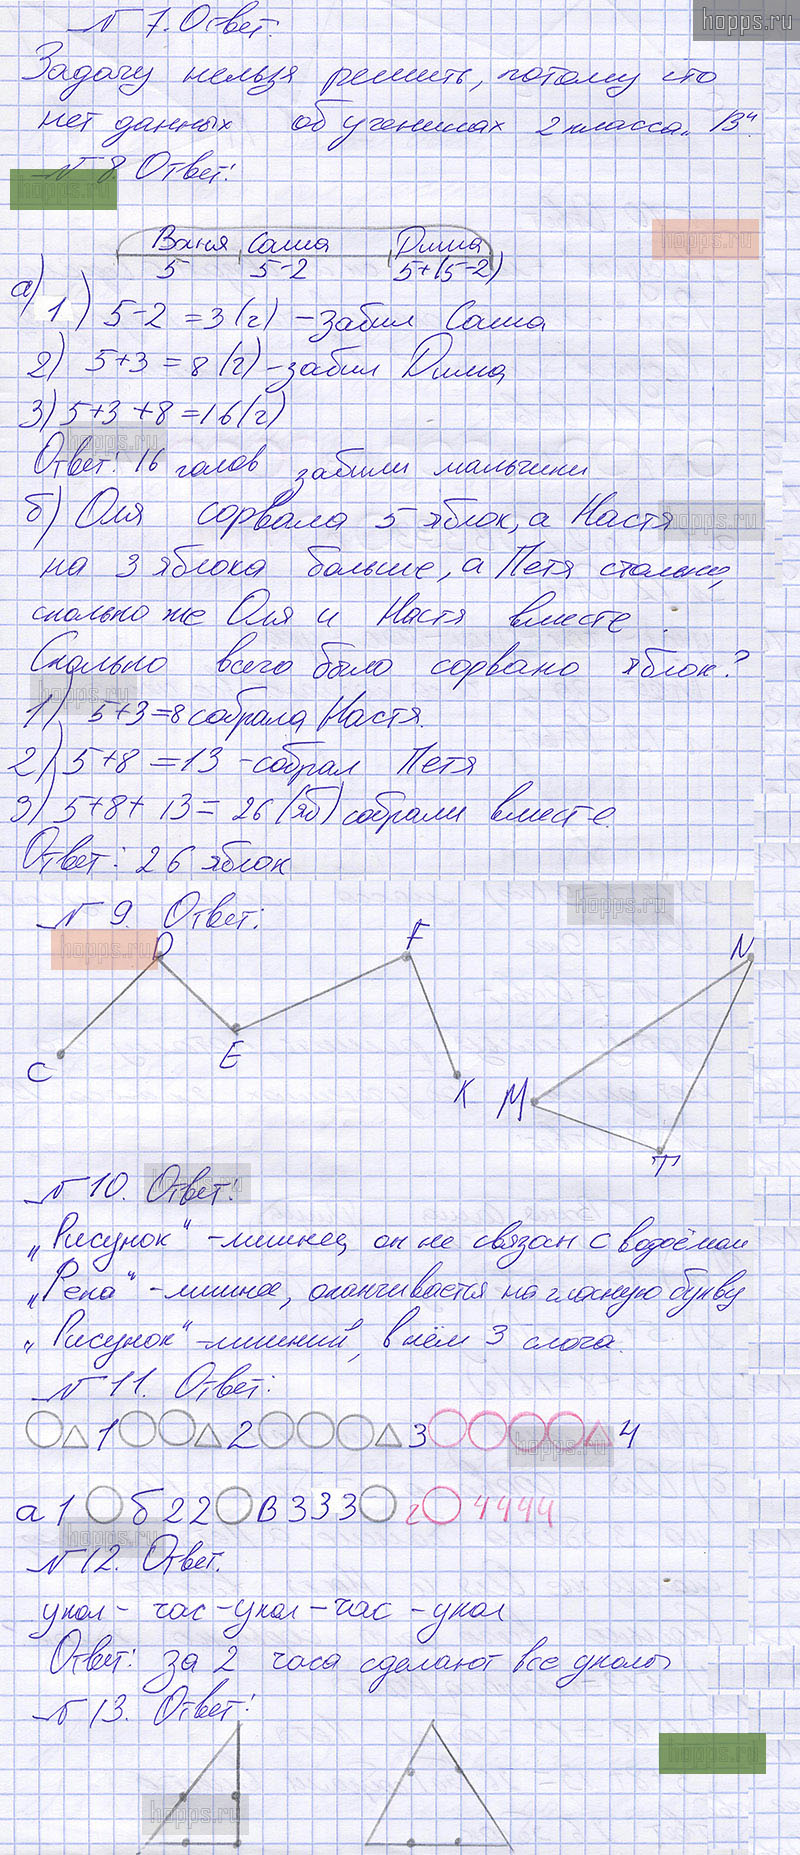 hopps.ru
N 7. Ответ.
Задачу нельзя решить, потому что
нет данных об учениках 2 класса „В“.
N 8. Ответ:
hopps.ru
hopps.ru
Ваня Саша Дима
5 5-2 5+(5-2)
а)
1) 5-2=3(г) -забил Саша
2) 5+3=8(г)-забил Дима
3) 5+3+8=16(г)
hopps.ru
Ответ: 16 голов забили мальчики
б) Оля сорвала 5 яблок, а Настя
hopps.ru
на 3 яблока больше, а Петя столько,
сколько же Оля и Настя вместе.
Сколько всего было сорвано яблок?
hopps.ru
1) 5+3=8 собрала Настя.
2) 5+8=13 -собрал Петя
3) 5+8+13=26(яб) собрали вместе.
Ответ: 26 яблок
hopps.ru
N 9. Ответ:
hopps.ru
D F N
C E K M T
N 10. Ответ:
hopps.ru
„Рисунок“ -лишнее, он не связан с водоёмом
„Репа“ -лишнее, оканчивается на гласную букву
„Рисунок“-лишний, в нём 3 слога.
N 11. Ответ:
1 2 3 4
hopps.ru
а 1 б 22 в 333 г 4444
hopps.ru
N 12. Ответ.
укол - час -укол -час -укол
Ответ: за 2 часа сделают все уколы
N 13. Ответ:
hopps.ru
hopps.ru